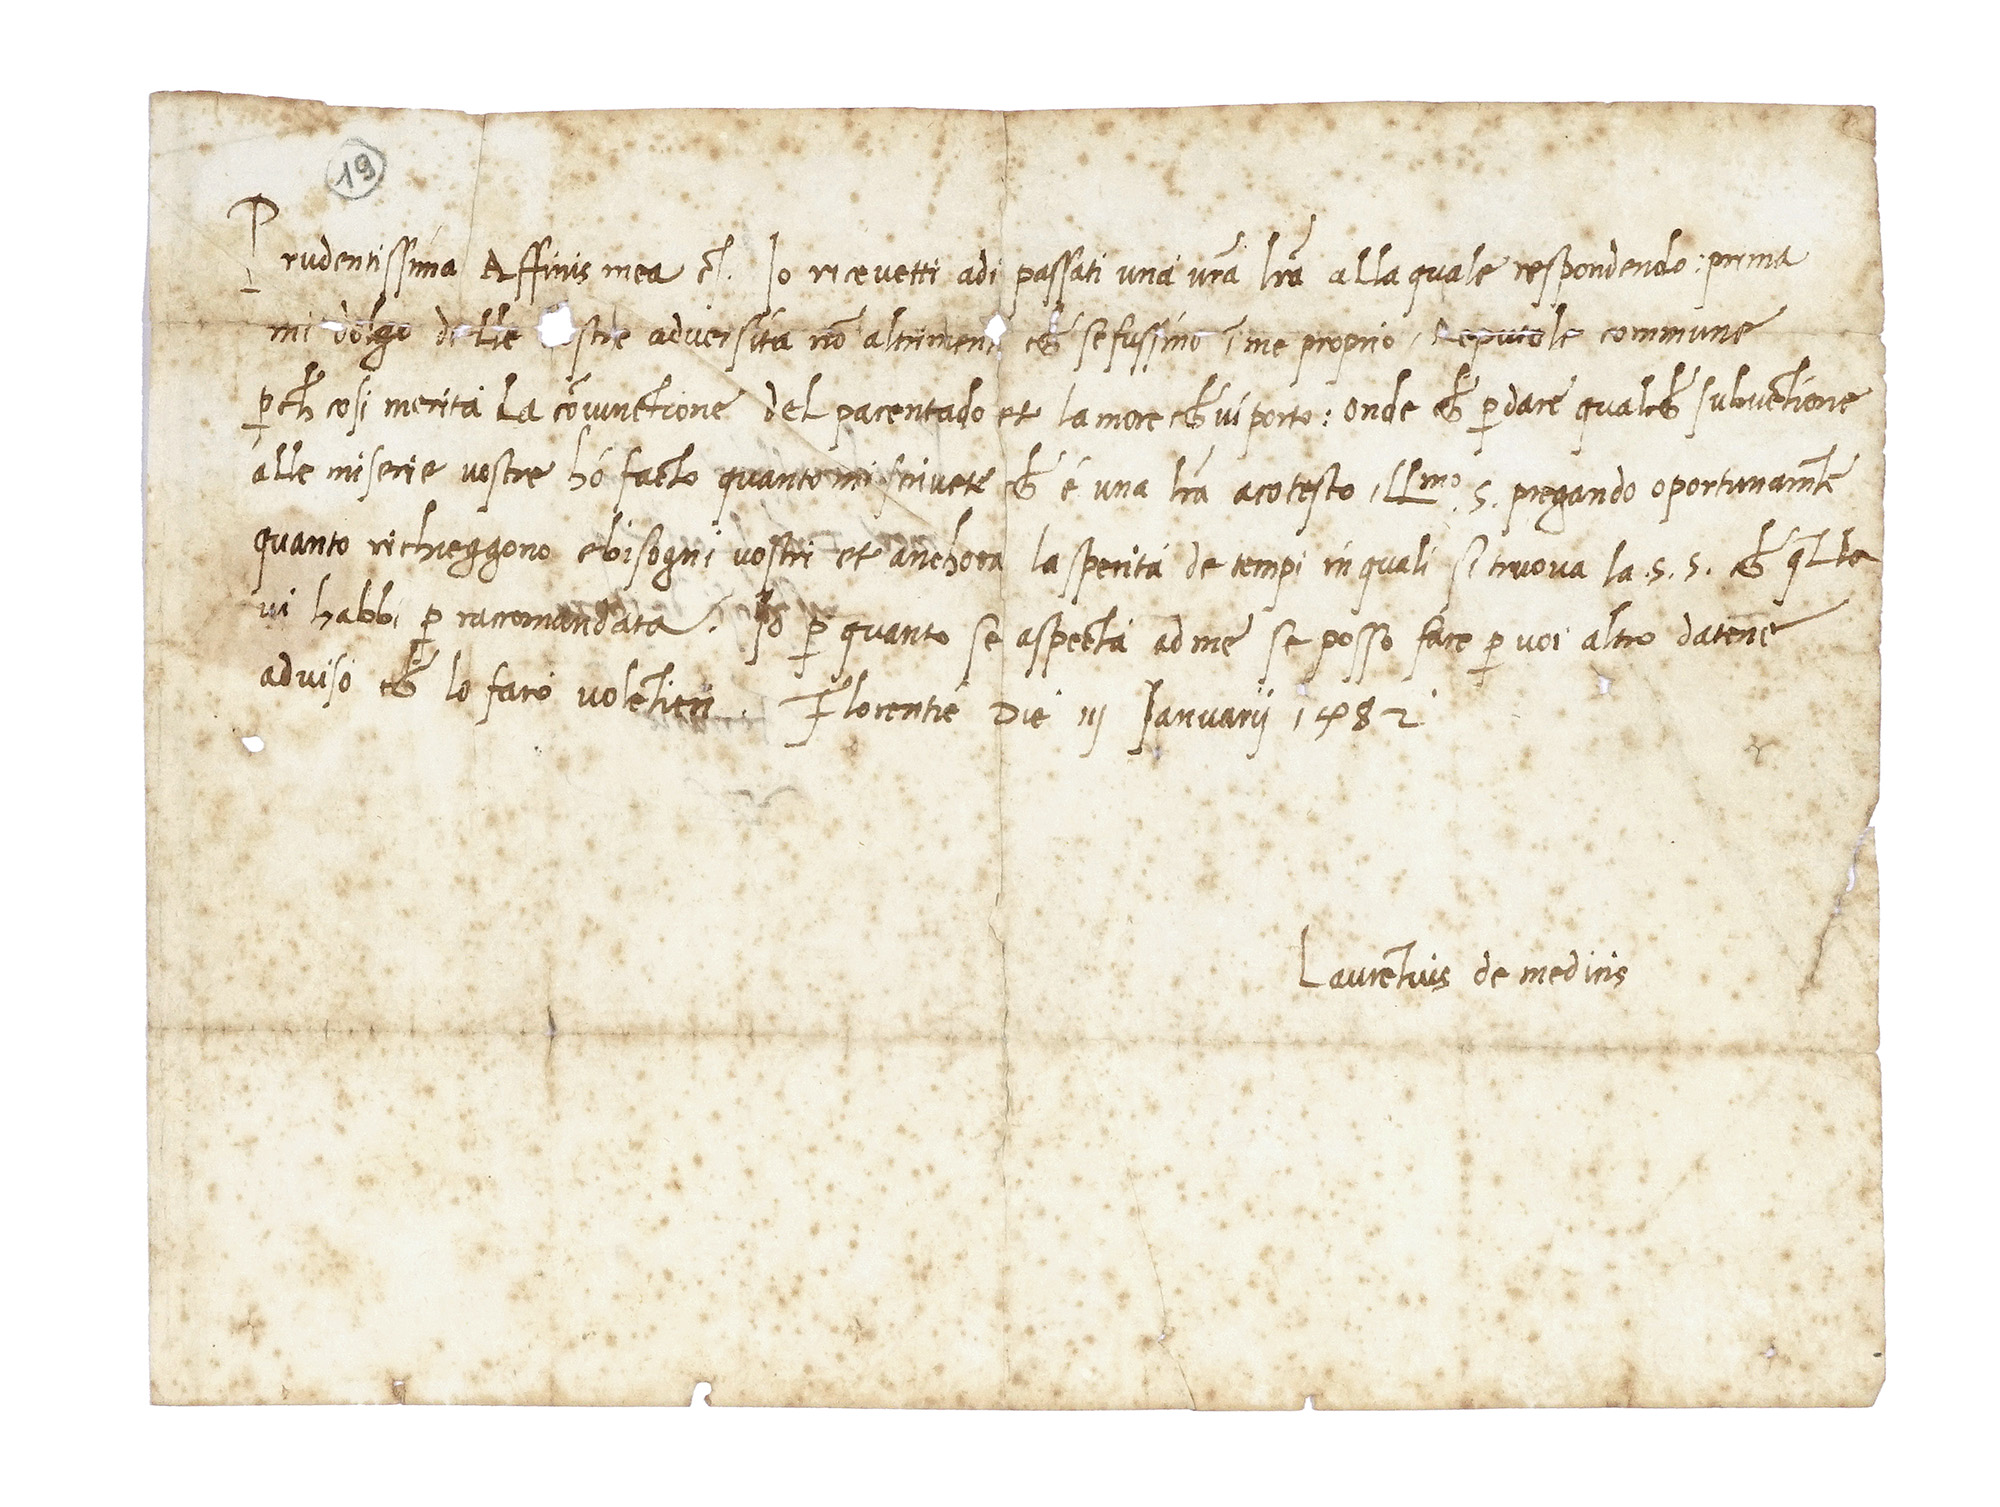 19
Prudentissima Affinis mea etc. Io ricevetti adi passati una vrā lrā alla quale respondendo: prima
mi dolgo delle stre adversita nō altrimenti che se fussino ī me proprio, Reputole commune
ꝑch cosi merita La cōiunctione del parentado et lamore che vi porto: onde che ꝑ dare qualche subvētione
alle miserie vostre hó facto quanto mi scrivete che é una lrā a cotesto Ill.mo S. pregando oportunamēte
quanto richieggono e bisogni vostri et anchora la sperita de tempi in quali si truova la .S. S. che q̄lla
vi habbi ꝑ racomandata. Io ꝑ quanto se aspecta ad me se posso fare ꝑ voi altro datene
adviso che lo faró volētieri. Florentie Die iij Ianuarij 1482
Laurētius de medicis